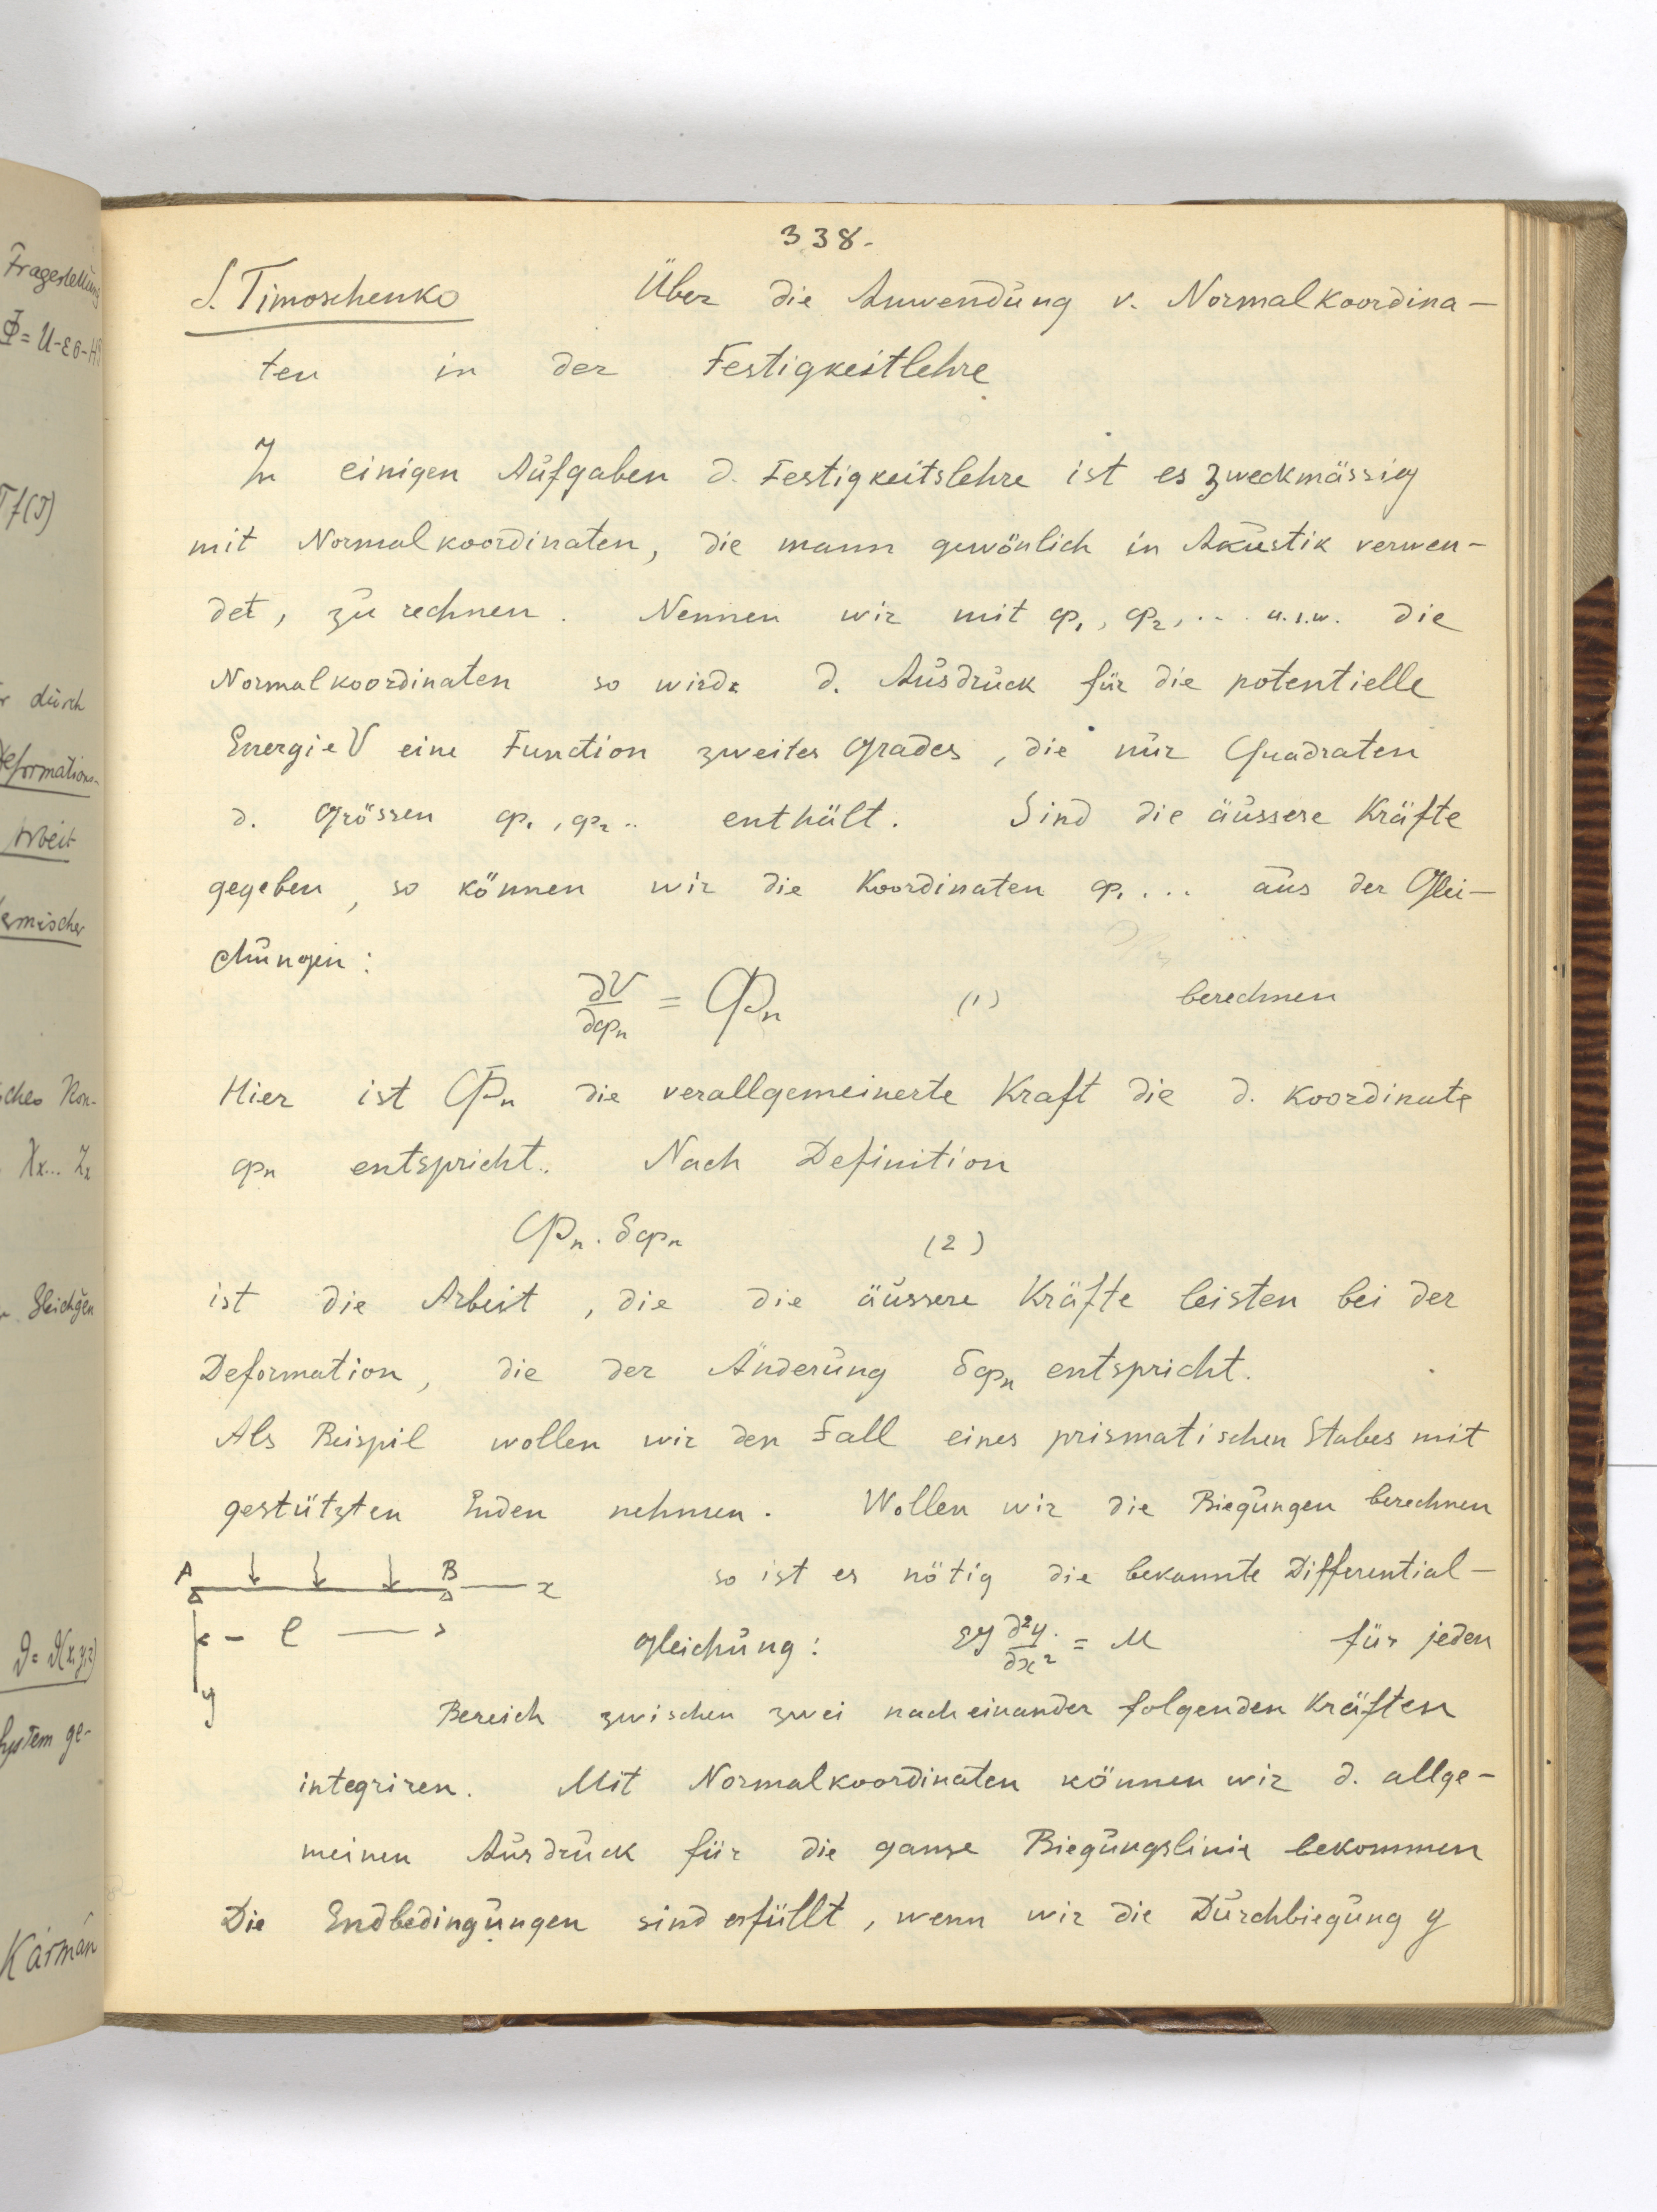 Fragestellung
Φ = U-εσ-H
Tf(T)
durch
Deformations-
Arbeit
ches Kon-
Xx... Zx
Gleichgen
ϑ = ϑ(x,y,z)
System ge-
Kármán
338.
S. Timoschenko Über die Anwendung v. Normalkoordina-
ten in der Festigkeitlehre
In einigen Aufgaben d. Festigkeitslehre ist es zweckmässig
mit Normalkoordinaten, die mann gewönlich in Akustik verwen-
det, zu rechnen. Nennen wir mit φ₁, φ₂, ... u.s.w. die
Normalkoordinaten so wird d. Ausdruck für die potentielle
Energie V eine Function zweites Grades, die nur Quadraten
d. Grössen φ₁, φ₂.. enthält. Sind die äussere Kräfte
gegeben, so können wir die Koordinaten φ₁... aus der Glei-
chungen:
∂V/∂φₙ = Φₙ (1) berechnen
Hier ist Φₙ die verallgemeinerte Kraft die d. Koordinate
φₙ entspricht.. Nach Definition
Φₙ . δφₙ (2)
ist die Arbeit, die die äussere Kräfte leisten bei der
Deformation, die der Änderung δφₙ entspricht.
Als Beispil wollen wir den Fall eines prismatischen Stabes mit
gestützten Enden nehmen. Wollen wir die Biegungen berechnen
A B x so ist es nötig die bekannte Differential-
l gleichung: EJ ∂²y/∂x² = M für jeden
y
Bereich zwischen zwei nacheinander folgenden Kräften
integriren. Mit Normalkoordinaten können wir d. allge-
meinen Ausdruck für die ganze Biegungslinie bekommen
Die Endbedingungen sind erfüllt, wenn wir die Durchbiegung y